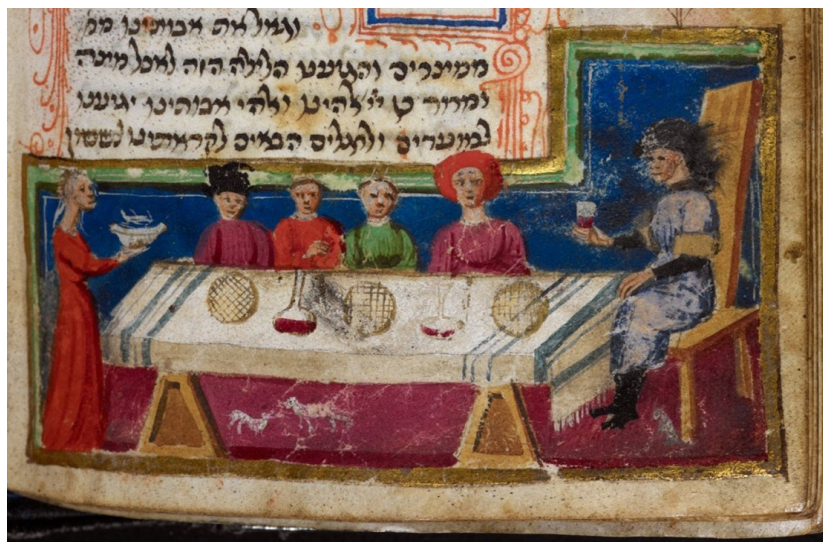 וגאל את אבותינו
ממצרים והגיענו הלילה הזה לאכל מצה
ומרור כן יי אלהינו ואלהי אבותינו יגיענו
למועדים ולרגלים הבאים לקראתינו לששון